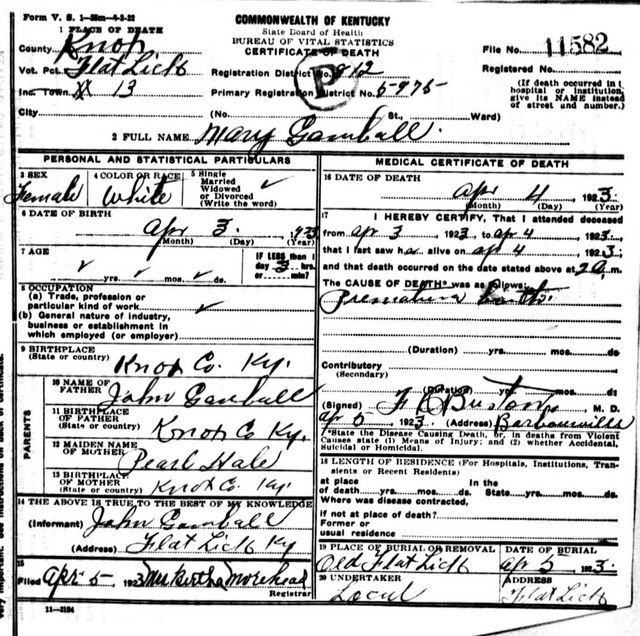 Form V. S. 1—35m—4-3-22
COMMONWEALTH OF KENTUCKY
State Board of Health
BUREAU OF VITAL STATISTICS
CERTIFICATE OF DEATH
1 PLACE OF DEATH
County Knox
File No. 11582
Vot. Pct. Flat Lick
Registration District No. 812
Registered No.
Inc. Town XX 13
Primary Registration District No. 5975
(If death occurred in a
hospital or institution,
give its NAME instead
of street and number.)
P
City (No. St., Ward)
2 FULL NAME Mary Gamball
PERSONAL AND STATISTICAL PARTICULARS
3 SEX Female
4 COLOR OR RACE White
5 Single
Married
Widowed
or Divorced
(Write the word)
6 DATE OF BIRTH
Apr 3 1923
(Month) (Day) (Year)
7 AGE
yrs. mos. ds.
IF LESS than 1
day 3 hrs.
or min?
8 OCCUPATION
(a) Trade, profession or
particular kind of work
(b) General nature of industry,
business or establishment in
which employed (or employer)
9 BIRTHPLACE
(State or country) Knox Co. Ky.
PARENTS
10 NAME OF
FATHER John Gamball
11 BIRTHPLACE
OF FATHER
(State or country) Knox Co Ky.
12 MAIDEN NAME
OF MOTHER Pearl Hale
13 BIRTHPLACE
OF MOTHER
(State or country) Knox Co. Ky.
14 THE ABOVE IS TRUE TO THE BEST OF MY KNOWLEDGE
(Informant) John Gamball
(Address) Flat Lick Ky
15
Filed Apr 5- 1923 Mrs Bertha Morehead
Registrar
11—3184
MEDICAL CERTIFICATE OF DEATH
16 DATE OF DEATH
Apr 4 1923
(Month) (Day) (Year)
17 I HEREBY CERTIFY, That I attended deceased
from Apr 3 1923 to Apr 4 1923;
that I last saw h alive on Apr 4 1923;
and that death occurred on the date stated above at 2 a m.
The CAUSE OF DEATH* was as follows:
Premature birth
(Duration) yrs. mos. ds.
Contributory
(Secondary)
(Duration) yrs. mos. ds.
(Signed) M. D.
Apr 5 1923 (Address) Barbourville
*State the Disease Causing Death, or, in deaths from Violent
Causes state (1) Means of Injury; and (2) whether Accidental,
Suicidal or Homicidal.
18 LENGTH OF RESIDENCE (For Hospitals, Institutions, Tran-
sients or Recent Residents)
at place In the
of death yrs. mos. ds. State yrs. mos. ds.
Where was disease contracted,
if not at place of death?
Former or
usual residence
19 PLACE OF BURIAL OR REMOVAL
Old Flat Lick
DATE OF BURIAL
Apr 5 1923
20 UNDERTAKER
Local
ADDRESS
Flat Lick